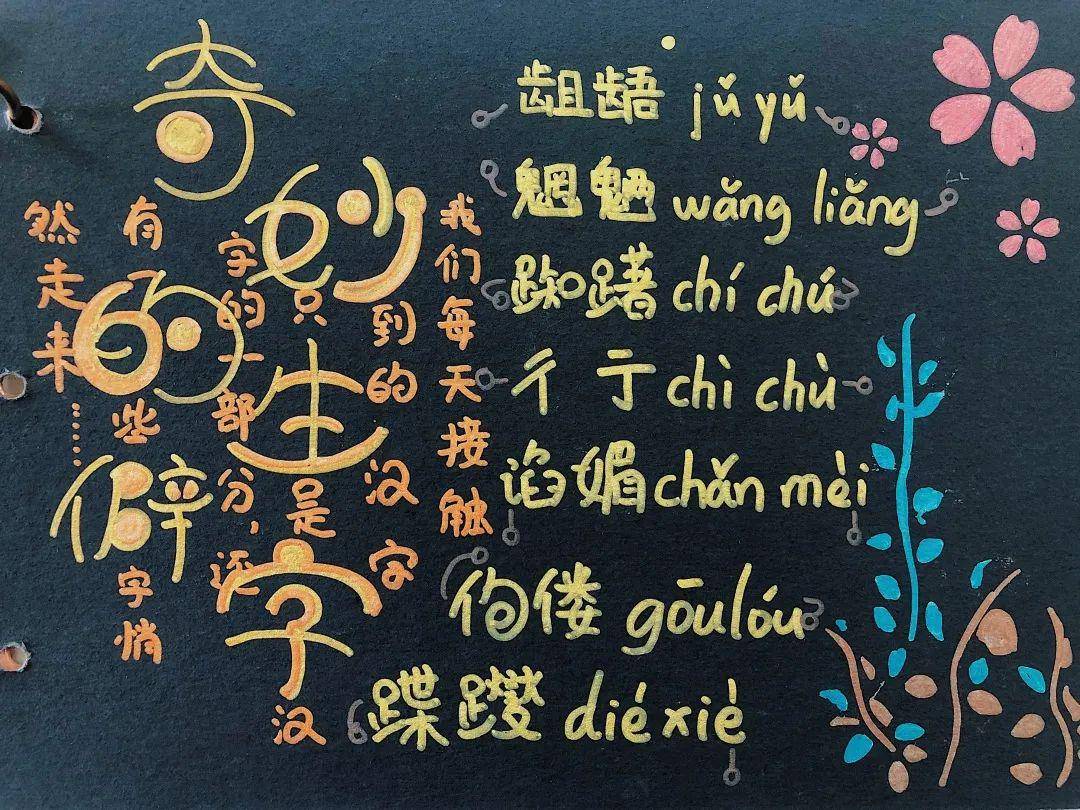 奇妙的生僻字
我们每天接触
到的汉字
只是汉
字的一部分,还
有一些字悄
然走来……
龃龉 jǔ yǔ
魍魉 wǎng liǎng
踟躇 chí chú
彳亍 chì chù
谄媚 chǎn mèi
佝偻 gōulóu
蹀躞 dié xiè